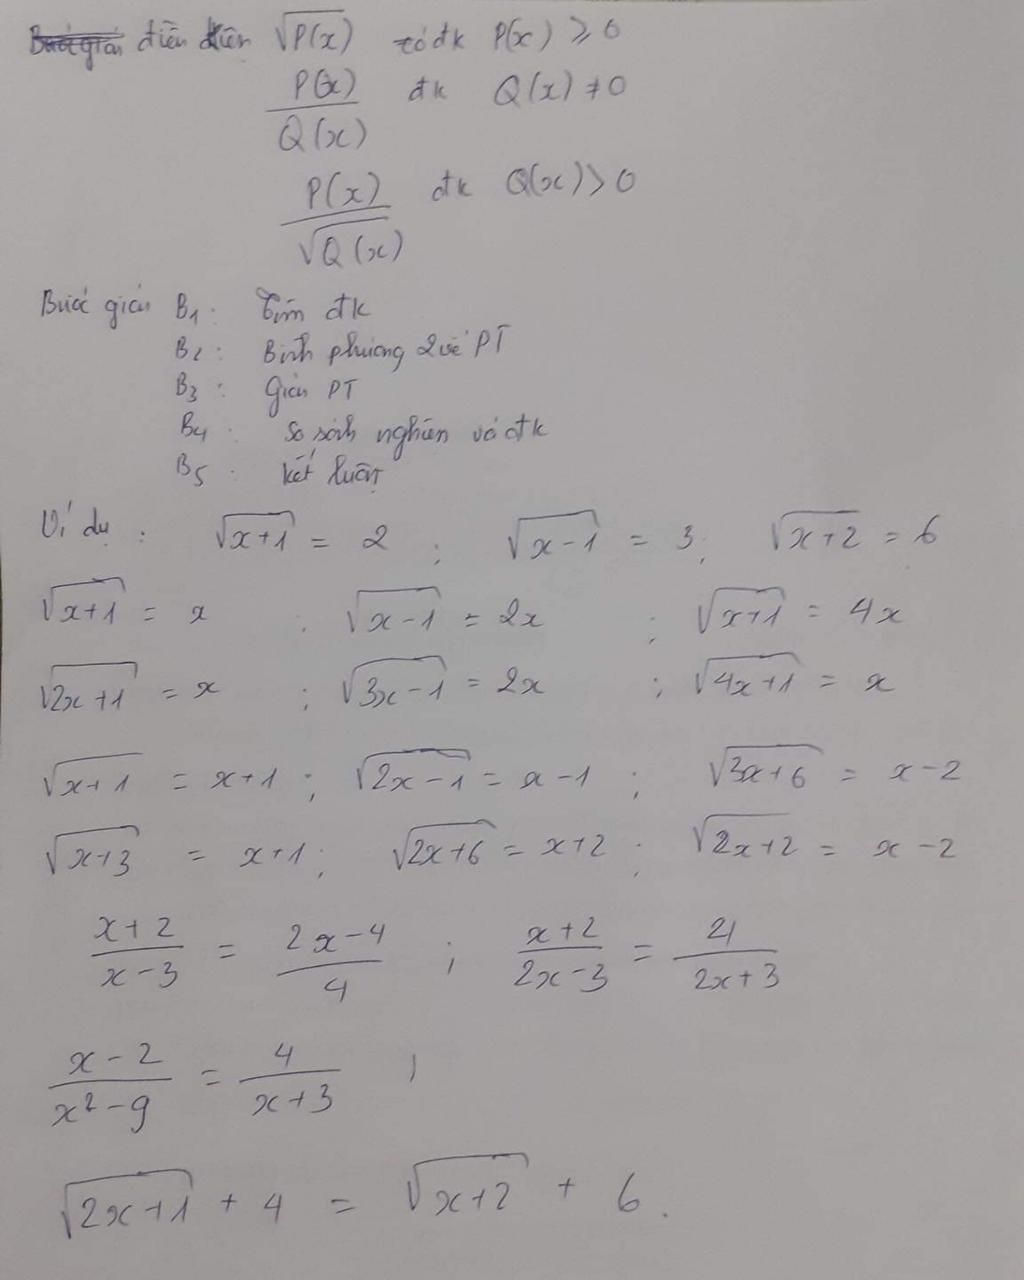 điều kiện √P(x) có đk P(x) ≥ 0
P(x)/Q(x) đk Q(x) ≠ 0
P(x)/√Q(x) đk Q(x) > 0
Bước giải B1: Tìm đk
B2: Bình phương 2 vế PT
B3: Giải PT
B4: So sánh nghiệm với đk
B5: Kết luận
Ví dụ: √(x+1) = 2 ; √(x-1) = 3 ; √(x+2) = 6
√(x+1) = x ; √(x-1) = 2x ; √(x+1) = 4x
√(2x+1) = x ; √(3x-1) = 2x ; √(4x+1) = x
√(x+1) = x+1 ; √(2x-1) = x-1 ; √(3x+6) = x-2
√(x+3) = x+1 ; √(2x+6) = x+2 ; √(2x+2) = x-2
(x+2)/(x-3) = (2x-4)/4 ; (x+2)/(2x-3) = 21/(2x+3)
(x-2)/(x²-9) = 4/(x+3) ;
√(2x+1) + 4 = √(x+2) + 6.